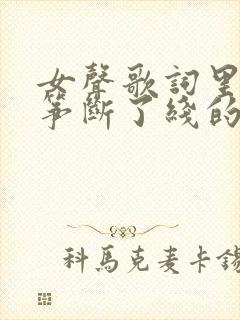 女聲歌詞里
筝斷了綫的
科馬克麦卡錫